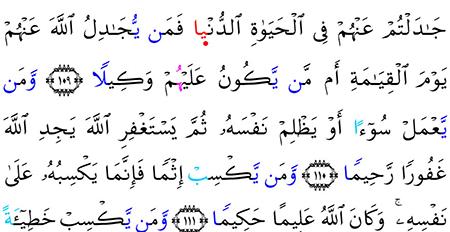 جَـٰدَلْتُمْ عَنْهُمْ فِى الْحَيَوٰةِ الدُّنْيا فَمَن يُّجَـٰدِلُ اللَّهَ عَنْهُمْ
يَوْمَ الْقِيَـٰمَةِ أَم مَّن يَّكُونُ عَلَيْهِمْ وَكِيلًا ﴿١٠٩﴾ وَّمَن
يَّعْمَلْ سُوٓءًا أَوْ يَظْلِمْ نَفْسَهُۥ ثُمَّ يَسْتَغْفِرِ اللَّهَ يَجِدِ اللَّهَ
غَفُورًا رَّحِيمًا ﴿١١٠﴾ وَّمَن يَّكْسِبْ إِثْمًا فَإِنَّمَا يَكْسِبُهُۥ عَلَىٰ
نَفْسِهِۦ ۚ وَكَانَ اللَّهُ عَلِيمًا حَكِيمًا ﴿١١١﴾ وَّمَن يَّكْسِبْ خَطِيٓـَٔةً